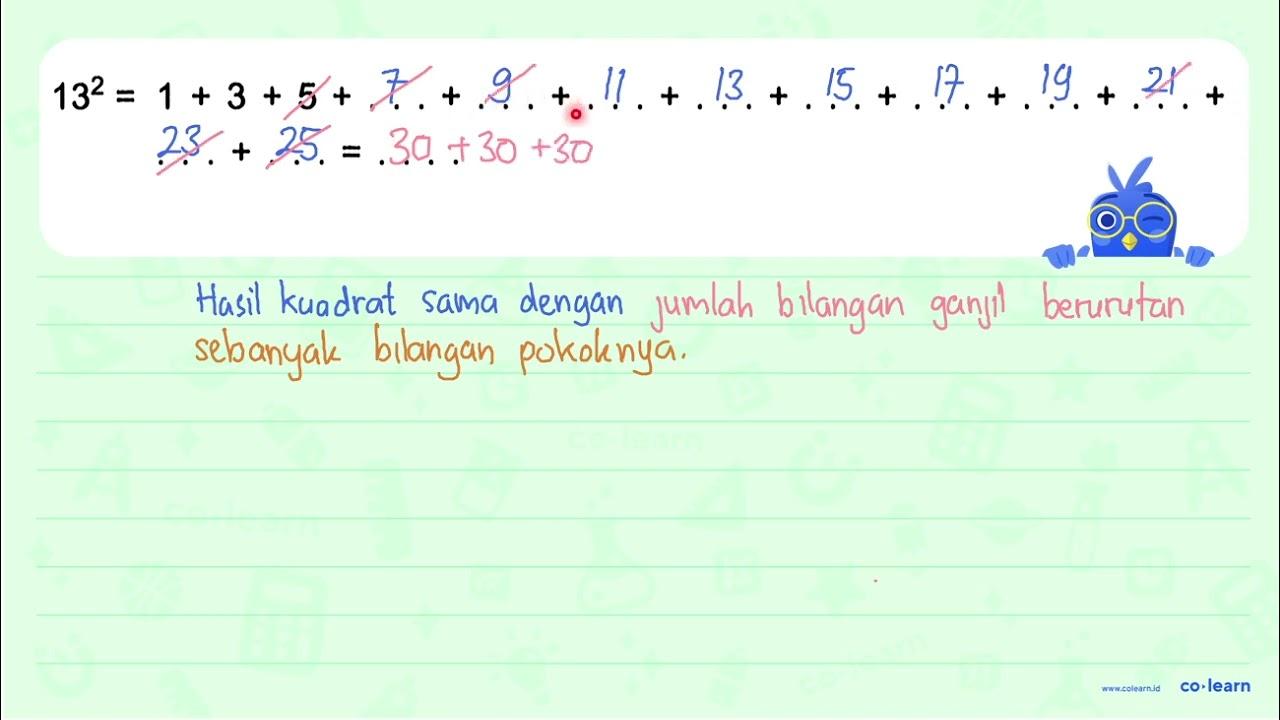 13² = 1 + 3 + 5 + 7 + 9 + 11 + 13 + 15 + 17 + 19 + 21 +
23 + 25 = 30 + 30 + 30
Hasil kuadrat sama dengan jumlah bilangan ganjil berurutan
sebanyak bilangan pokoknya.
co-learn
co-learn
co-learn
www.colearn.id co·learn